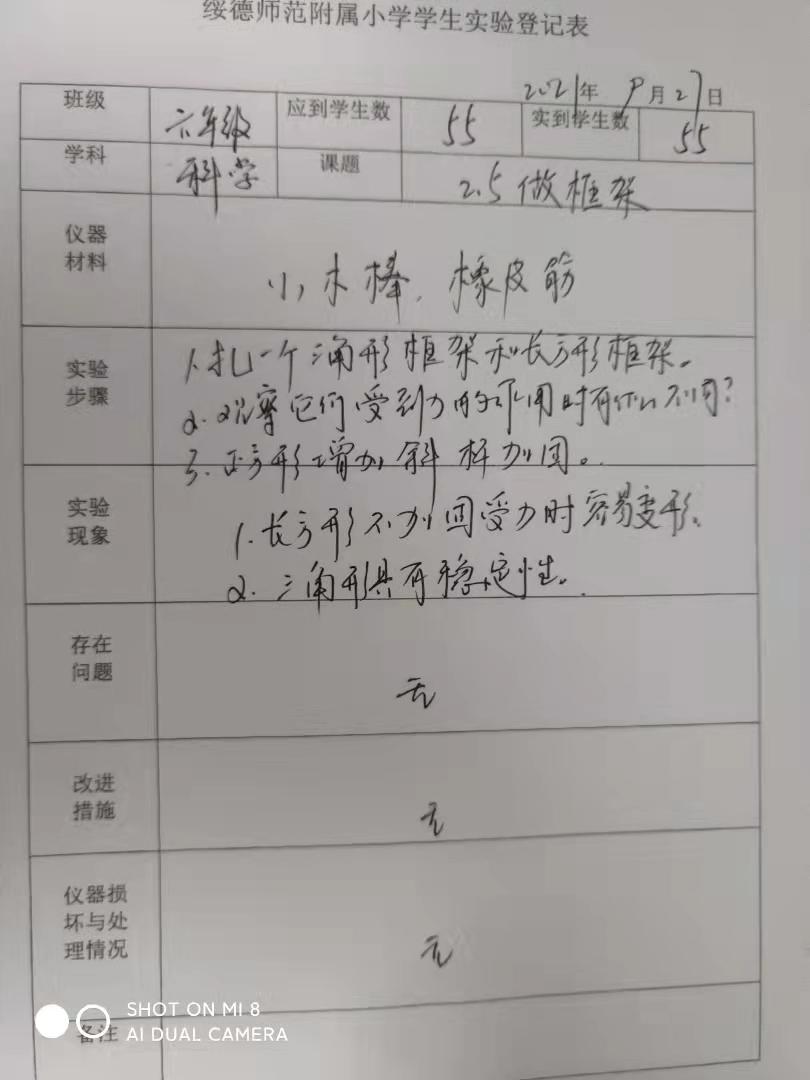 绥德师范附属小学学生实验登记表
2021年9月27日
班级 六年级 应到学生数 55 实到学生数 55
学科 科学 课题 2.5 做框架
仪器
材料
小木棒、橡皮筋
实验
步骤
1.扎一个三角形框架和长方形框架。
2.观察它们受到力的作用时有什么不同?
3.正方形增加斜杆加固。
实验
现象
1.长方形不加固受力时容易变形。
2.三角形具有稳定性。
存在
问题
无
改进
措施
无
仪器损
坏与处
理情况
无
备注
SHOT ON MI 8
AI DUAL CAMERA